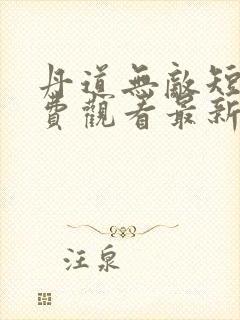 丹道無敵短
費觀看最新
汪泉